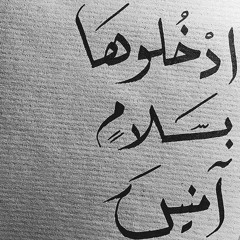 ادْخُلُوهَا
بِسَلَامٍ
آمِنِينَ